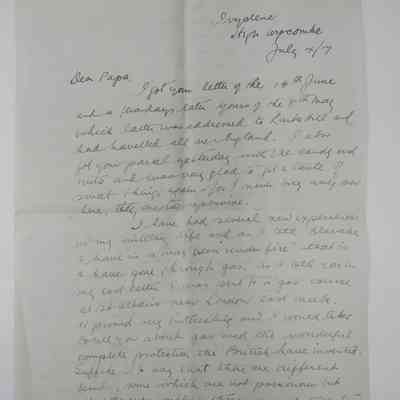 Ivydene
High Wycombe
July 4/7
Dear Papa
I got your letter of the 14th June
and a few days later yours of the 8th May
which latter was addressed to and
had travelled all over England. I also
got your parcel yesterday with the candy and
nuts and was very glad to get a taste of
sweet things again for I never buy any over
here, they are too expensive.
I have had several new experiences
in my military life and as I tell Blanche
I have in a way been "under fire" that is
I have gone through gas. As I told you in
my last letter I was sent to a gas course
at St Albans near London last week.
It proved very interesting and I would like
to tell you about gas and the wonderful
complete protection the British have invented.
Suffice to say that there are different
kinds, some which are not poisonous but